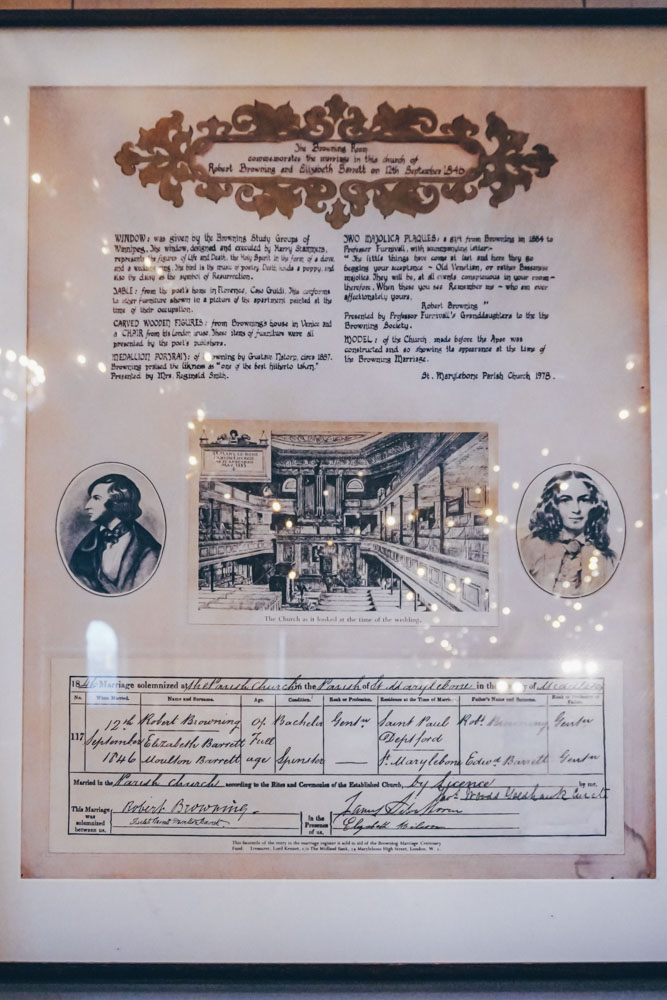 The Browning Room
commemorates the marriage in this church of
Robert Browning and Elizabeth Barrett on 12th September 1846
WINDOW: was given by the Browning Study Groups of
Winnipeg. The window, designed and executed by Harry Stammers,
represents the figures of Life and Death, the Holy Spirit in the form of a dove,
and a wedding ring. The bird is the music of poetry, Death holds a poppy, and
also the daisy as the symbol of Resurrection.
TABLE: from the poet's home in Florence, Casa Guidi. This conforms
to other furniture shown in a picture of the apartment painted at the
time of their occupation.
CARVED WOODEN FIGURES: from Browning's house in Venice and
a CHAIR from his London house. These items of furniture were all
presented by the poet's publishers.
MEDALLION PORTRAIT: of Browning by Gustav Natorp, circa 1887.
Browning praised the likeness as "one of the best hitherto taken."
Presented by Mrs. Reginald Smith.
TWO MAJOLICA PLAQUES: a gift from Browning in 1884 to
Professor Furnivall, with accompanying letter:-
"The little things have come at last and here they go
begging your acceptance - Old Venetian, or rather Bassanese
majolica They will be, at all events conspicuous in your room -
therefore. When these you see Remember me - who am ever
affectionately yours,
Robert Browning"
Presented by Professor Furnivall's Granddaughters to the the
Browning Society.
MODEL: of the Church, made before the Apse was
constructed and so showing its appearance at the time of
the Browning Marriage.
St. Marylebone Parish Church 1978.
The Church as it looked at the time of the wedding.
1846 Marriage solemnized at the Parish Church in the Parish of St Marylebone in the of Middlesex
No. When Married. Name and Surname. Age. Condition. Rank or Profession. Residence at the Time of Marriage. Father's Name and Surname. Rank or Profession of Father.
117 12th Robert Browning of Bachelor Gentn Saint Paul Robt Browning Gentn
September Elizabeth Barrett Full Deptford
1846 Moulton Barrett age Spinster — St Marylebone Edwd Barrett Gentn
Married in the Parish Church according to the Rites and Ceremonies of the Established Church, by Licence by me,
This Marriage was solemnized between us, Robert Browning
In the Presence of us,
This facsimile of the entry in the marriage register is sold in aid of the Browning Marriage Centenary
Fund. Treasurer, Lord Kennet, c/o The Midland Bank, Marylebone High Street, London, W. 1.